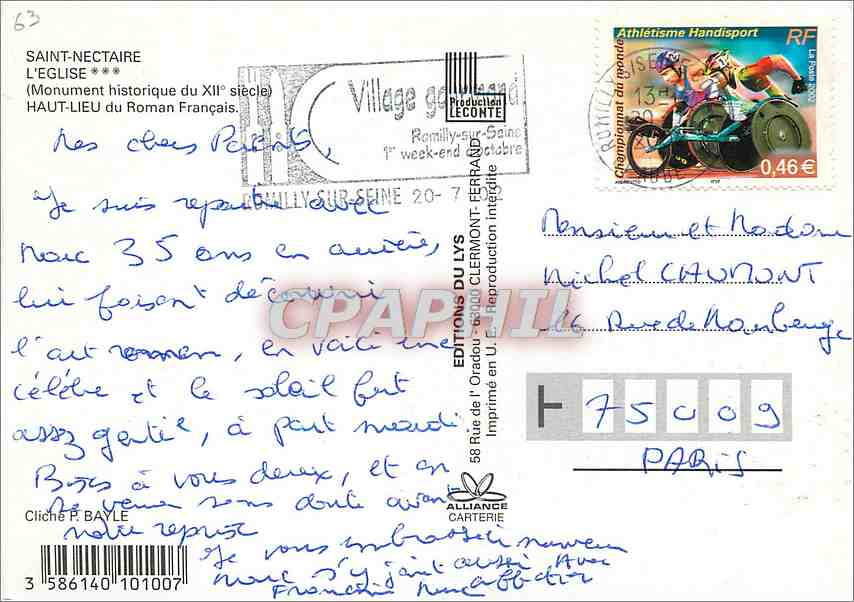 63
SAINT-NECTAIRE
L'EGLISE ***
(Monument historique du XIIe siècle)
HAUT-LIEU du Roman Français.
Village gourmand
Romilly-sur-Seine
1er week-end octobre
ROMILLY-SUR-SEINE 20-7 02
Production
LECONTE
Athlétisme Handisport
RF
La Poste 2002
Championnat du monde
0,46 €
ROMILLY S/SEINE
13H
20
AUBE
Mes chers Parents,
Je suis repartie avec
Marc 35 ans en arrière,
lui faisant découvrir
l'art roman, en voici une
célèbre et le soleil fut
assez gentil, à part mardi.
Bises à vous deux, et on
se verra sans doute avant
notre reprise
Je vous embrasse
Marc s'y joint aussi Avec
Francine Marc
EDITIONS DU LYS
58 Rue de l'Oradou - 63000 CLERMONT-FERRAND
Imprimé en U.E. - Reproduction interdite
ALLIANCE
CARTERIE
Monsieur et Madame
Michel CHAUMONT
Rue de Maubeuge
75009
PARIS
Cliché P. BAYLE
3 586140 101007
CPAPHIL